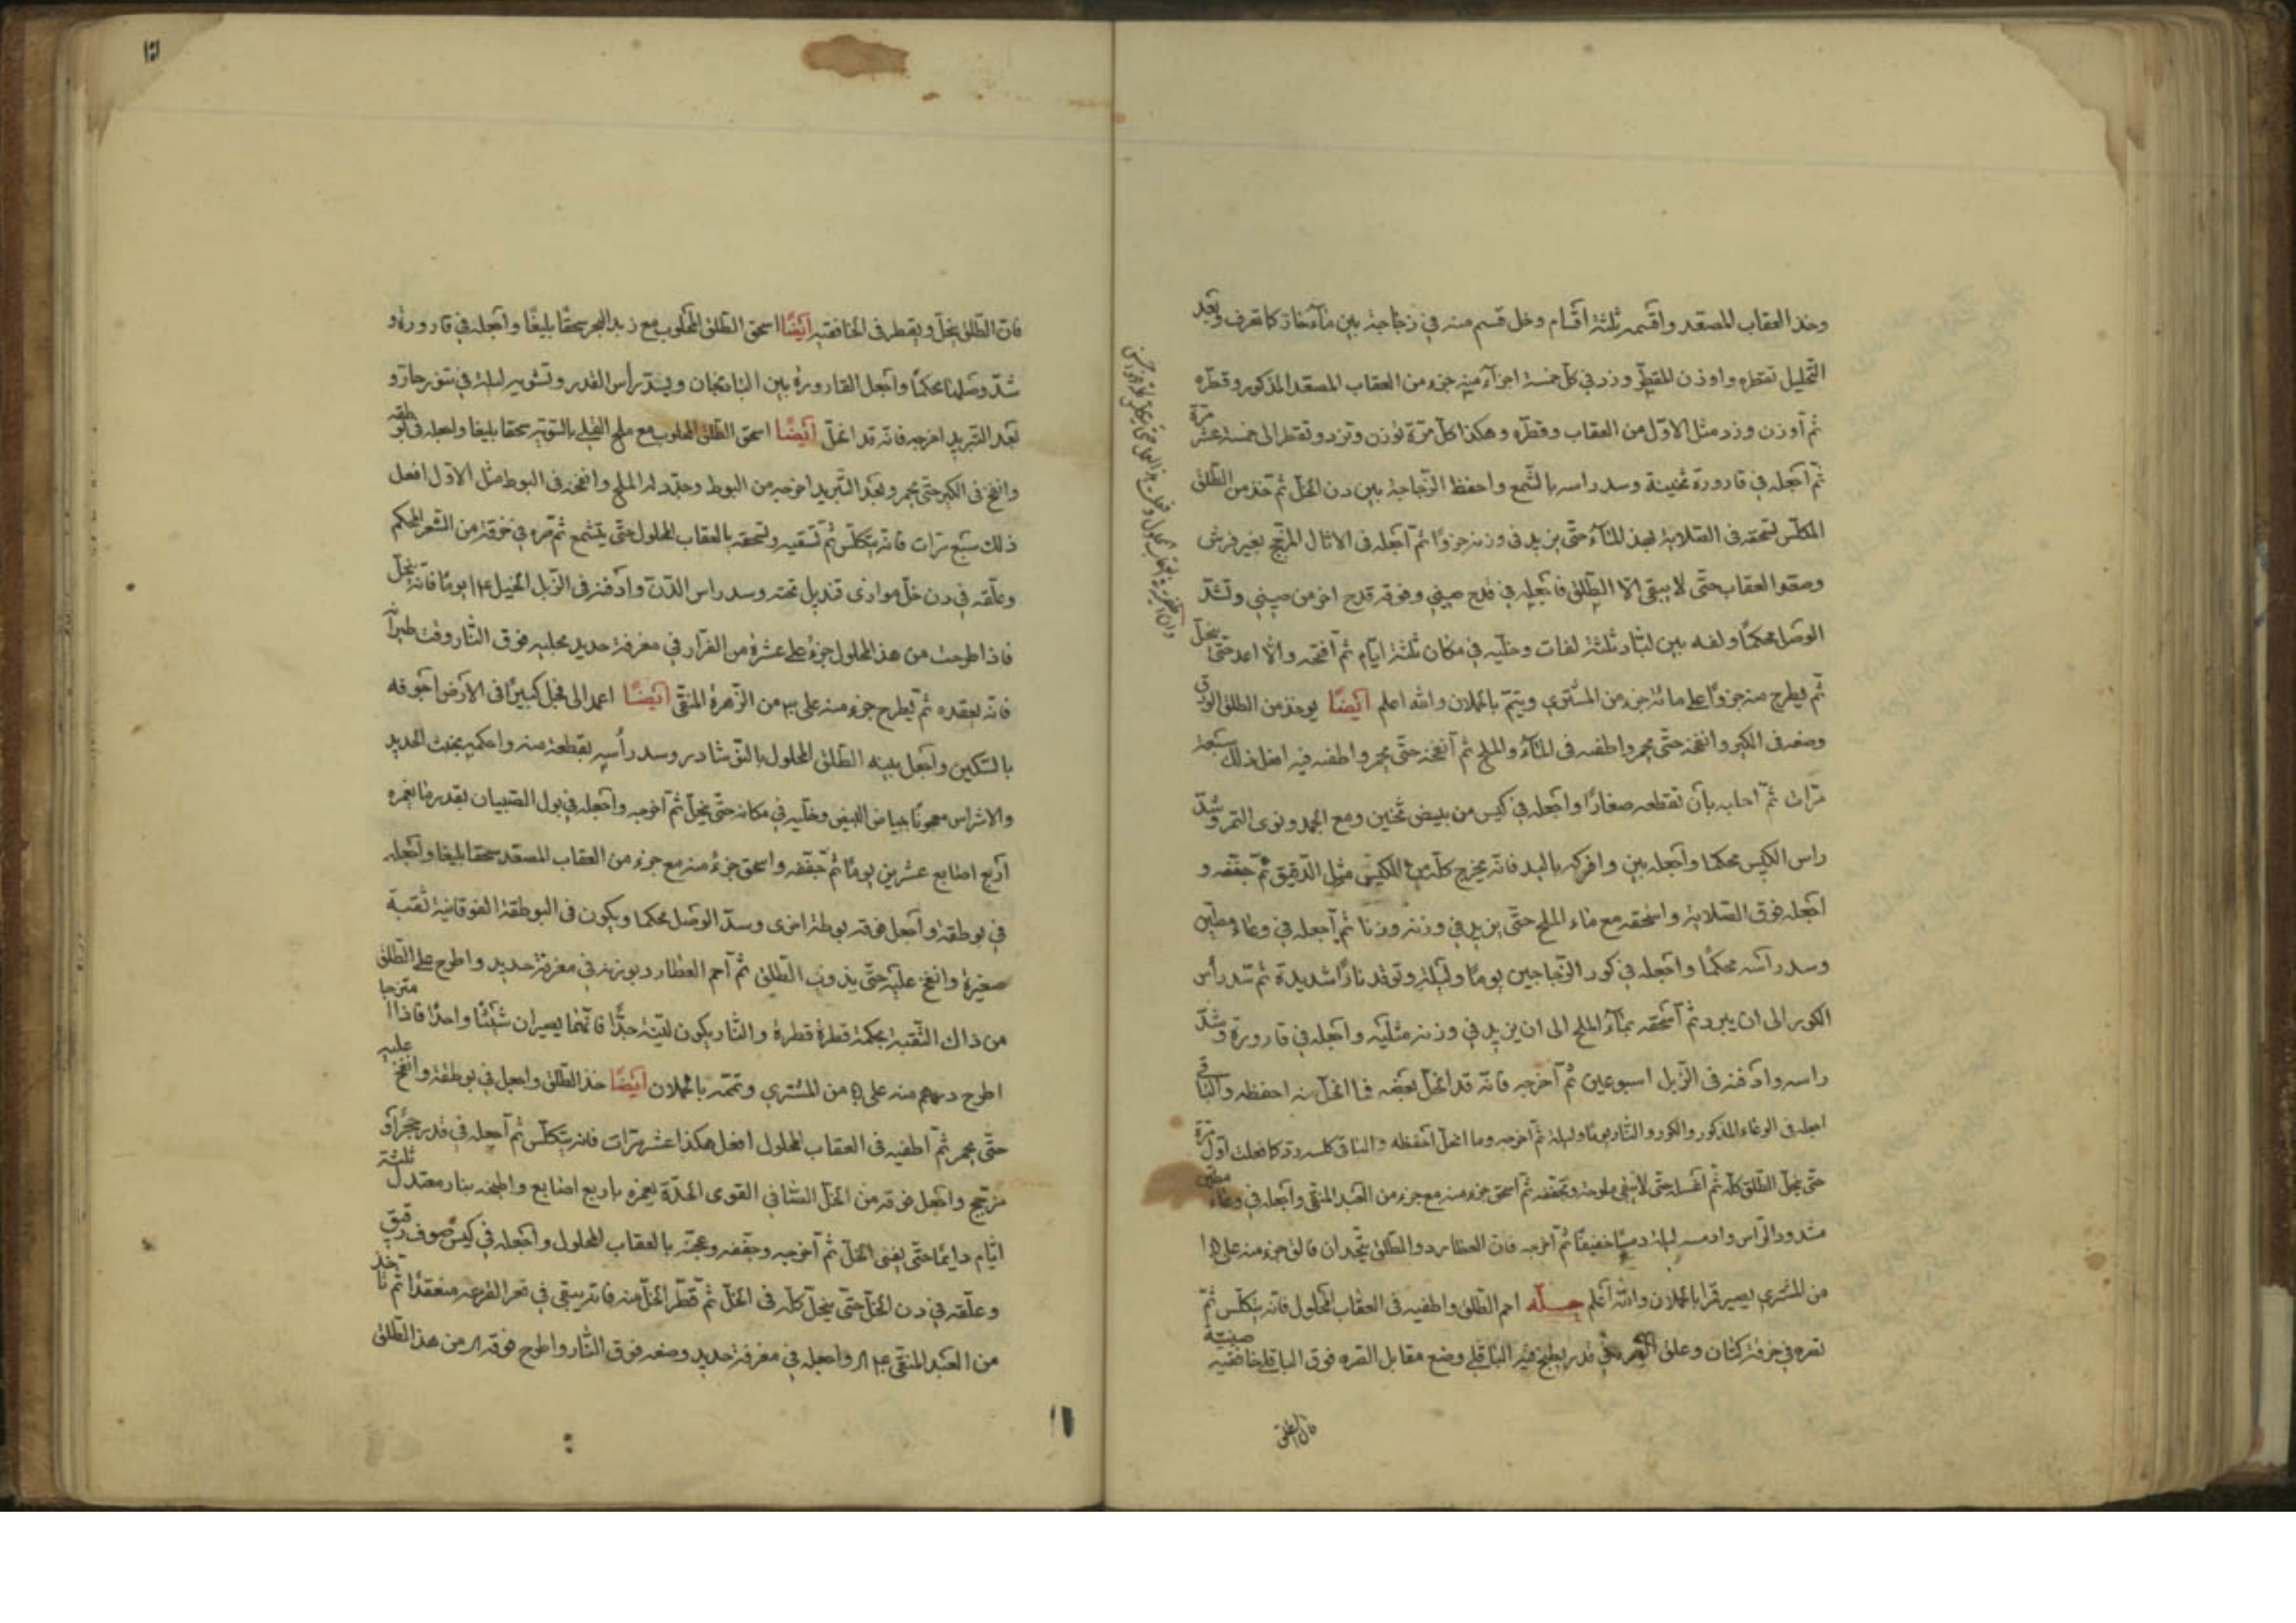 وخذ العقاب المصعد واقسمه ثلثة اقسام وخل قسم منه في زجاجة بين مآء حار كما تعرف وبعد
التحليل تقطره واوزن المقطر وزد في كل خمسة اجزآء منه جزء من العقاب المصعد المذكور وقطره
ثم أوزن وزد مثل الاول من العقاب وقطره وهكذا كل مرة توزن وتزد وتقطر الى خمسة عشر مرة
ثم اجعله في قارورة ثخينة وسد راسه بالشمع واحفظ الزجاجة بين دن الخل ثم خذ من الطلق
المكلس تسحقه في الصلاية بهذ المآء حتى يزيد في وزنه جزوًا ثم اجعله في الاثال المزجج بغير فرش
وصعد العقاب حتى لا يبقى الا الطلق فاجعله في قدح صيني وفوقه قدح اخر من صيني وتشد
الوصل محكمًا ولفه بين لباد ثلثة لفات وخليه في مكان ثلثة ايام ثم افتحه والا اعد حتى ينحل
ثم يطرح منه جزوًا على مائة جزء من المشتري ويتم بالحملان والله اعلم ايضًا يوخذ من الطلق الورقي
وضعه في الكير وانفخه حتى يحمر واطفه في المآء والملح ثم انفخه حتى يحمر واطفه فيه افعل ذلك سبعة
مرات ثم احلبه بأن تقطعه صغارًا واجعله في كيس من بيض ثخين ومع الجمد ونوى التمر وشد
راس الكيس محكما واجعله بين وافركه باليد فانه يخرج كله من الكيس مثل الدقيق ثم جففه و
اجعله فوق الصلاية واسحقه مع ماء الملح حتى يزيد في وزنه وزنا ثم اجعله في وعاء مطين
وسد رأسه محكمًا واجعله في كور الزجاجين يومًا وليلة وتوقد نارًا شديدة ثم تسد رأس
الكور الى ان يبرد ثم اسحقه بمآء الملح الى ان يزيد في وزنه مثليه واجعله في قارورة وشد
راسه وادفنه في الزبل اسبوعين ثم اخرجه فانه قد انحل بعضه فما انحل منه احفظه والباقي
اجعله في الوعاء المذكور والكور والنار يومًا وليلة ثم اخرجه وما انحل احفظه والباقي كلسه ورده كما فعلت اول مرة
حتى ينحل الطلق كله ثم اغسله حتى لا يبقى ملوحة وتجففه ثم اسحق جزء منه مع جزء من العبد المنقى واجعله في وعاء مطين
مشدود الراس وادمسه ليلة دمسًا خفيفًا ثم اخرجه فان العطارد والطلق يتحدان فالق جزء منه على
من المشتري يصير قمرا بالحملان والله أعلم حله احم الطلق واطفيه في العقاب المحلول فانه يتكلس ثم
تصره في خرقة كتان وعلق في قدر يطبخ فيه الباقلى وضع مقابل الصره فوق الباقلى خافقيه صينية
فان الطلق
فان الطلق ينحل ويقطر في الخافقيه ايضًا اسحق الطلق المحلوب مع زبد البحر سحقًا بليغًا واجعله في قارورة و
شد وصلها محكمًا واجعل القارورة بين الباذنجان ويسد رأس القدر وتشويه ليلة في تنور حار و
بعد التبريد اخرجه فانه قد انحل ايضًا اسحق الطلق المحلوب مع ملح القلي بالسويه سحقا بليغا واجعله في بوطقه
وانفخ في الكير حتى يحمر وبعد التبريد اخرجه من البوط وجدد له الملح وانفخه في البوط مثل الاول افعل
ذلك سبع مرات فانه يتكلس ثم تسقيه وتسحقه بالعقاب المحلول حتى يتشمع ثم صره في خرقة من الشعر المحكم
وعلقه في دن خل موازى قنديل تحته وسد راس الدن وادفنه في الزبل الخيل ١٤ يومًا فانه ينحل
فاذا طرحت من هذ المحلول جزء على عشرة من الفرار في مغرفة حديد محلبيه فوق النار وقت طيرانه
فانه يعقده ثم يطرح جزء منه على ٣٠ من الزهرة المنقى ايضًا اعمد الى فجل كبيرًا في الارض اجوفه
بالسكين واجعل بينه الطلق المحلول بالنوشادر وسد رأسه بقطعة منه واحكمه بخبث الحديد
والاشراس معجونًا ببياض البيض وخليه في مكانه حتى ينحل ثم اخرجه واجعله في بول الصبيان بقدر ما يغمره
أربع اصابع عشرين يومًا ثم جففه واسحق جزء منه مع جزء من العقاب المصعد سحقا بليغا واجعله
في بوطقة واجعل فوقه بوطة اخرى وسد الوصل محكما ويكون في البوطقة الفوقانية ثقبة
صغيرة وانفخ عليه حتى يذوب الطلق ثم احم العطارد بوزنه في مغرفة حديد واطرح على الطلق
من ذاك الثقبة بحكمة قطرة قطرة والنار يكون لينة جدًا فانهما يصيران شيئًا واحدًا فاذا امتزجا
اطرح درهم منه على من المشتري وتممه بالحملان ايضًا خذ الطلق واجعل في بوطقة وانفخ عليه
حتى يحمر ثم اطفيه في العقاب المحلول افعل هكذا عشر مرات فانه يتكلس ثم اجعله في قدر حجر او
مزجج واجعل فوقه من الخل الصافي القوى الحدة يغمزه باربع اصابع واطبخه بنار معتدل ثلثة
ايام دايمًا حتى يفنى الخل ثم اخرجه وجففه وعجنه بالعقاب المحلول واجعله في كيس صوف رقيق
وعلقه في دن الخل حتى ينحل كله في الخل ثم قطر الخل منه فانه يبقى في قعر القرعه منعقدًا ثم تأخذ
من العبد المنقى واجعله في مغرفة حديد وضعه فوق النار واطرح فوقه من هذ الطلق